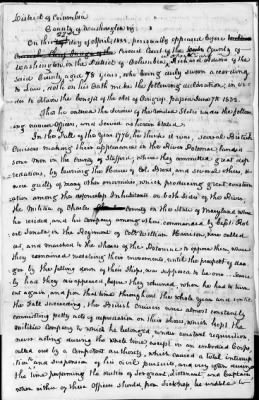 District of Columbia
County of Washington, viz;
On this day of April, 1833, personally appeared before
the Circuit Court of the County of
Washington, in the District of Columbia,
said County aged 78 years, who being duly sworn according
to Law, doth on his Oath make the following declaration, in or-
der to obtain the benefit of the act of Congress, passed June 7th 1832.
That he entered the service of the United States under the follow-
ing named officers, and served as herein stated.
In the Fall of the Year 1776, he thinks it was, several British
Cruisers making their appearance in the River Potomac, landed
some men in the County of Stafford, where they committed great dep-
redations, by burning the House of Col. Brent and several others, & were
guilty of many other enormities, which producing great constern-
ation among the Inhabitants on both sides of this River,
the Militia of Charles County in the State of Maryland where
he resided and his Company among others commanded by Capt.
in the Regiment of Col. William Harrison, were called
out, and marched to the Shores of the Potomac to oppose them, where
they remained watching their movements, until the prospect of dan-
ger by the falling down of their Ships, was supposed to be over. Scarce-
ly had they disappeared, before they returned, when he had to turn
out again, and from that time throughout the whole year and until
the Fall succeeding, the British Cruisers were almost constantly
committing petty acts of depredation on their shore, which kept the
Militia Company to which he belonged under constant requisition
never acting during the whole time, except in an embodied Corps
called out by a competent authority, which caused a total interrup-
tion and suspension of his civil pursuits, and very often during
the time performing the duties of Sergeant, Lieutenant and Captain
when either of these Officers should, from Sickness, be unable to